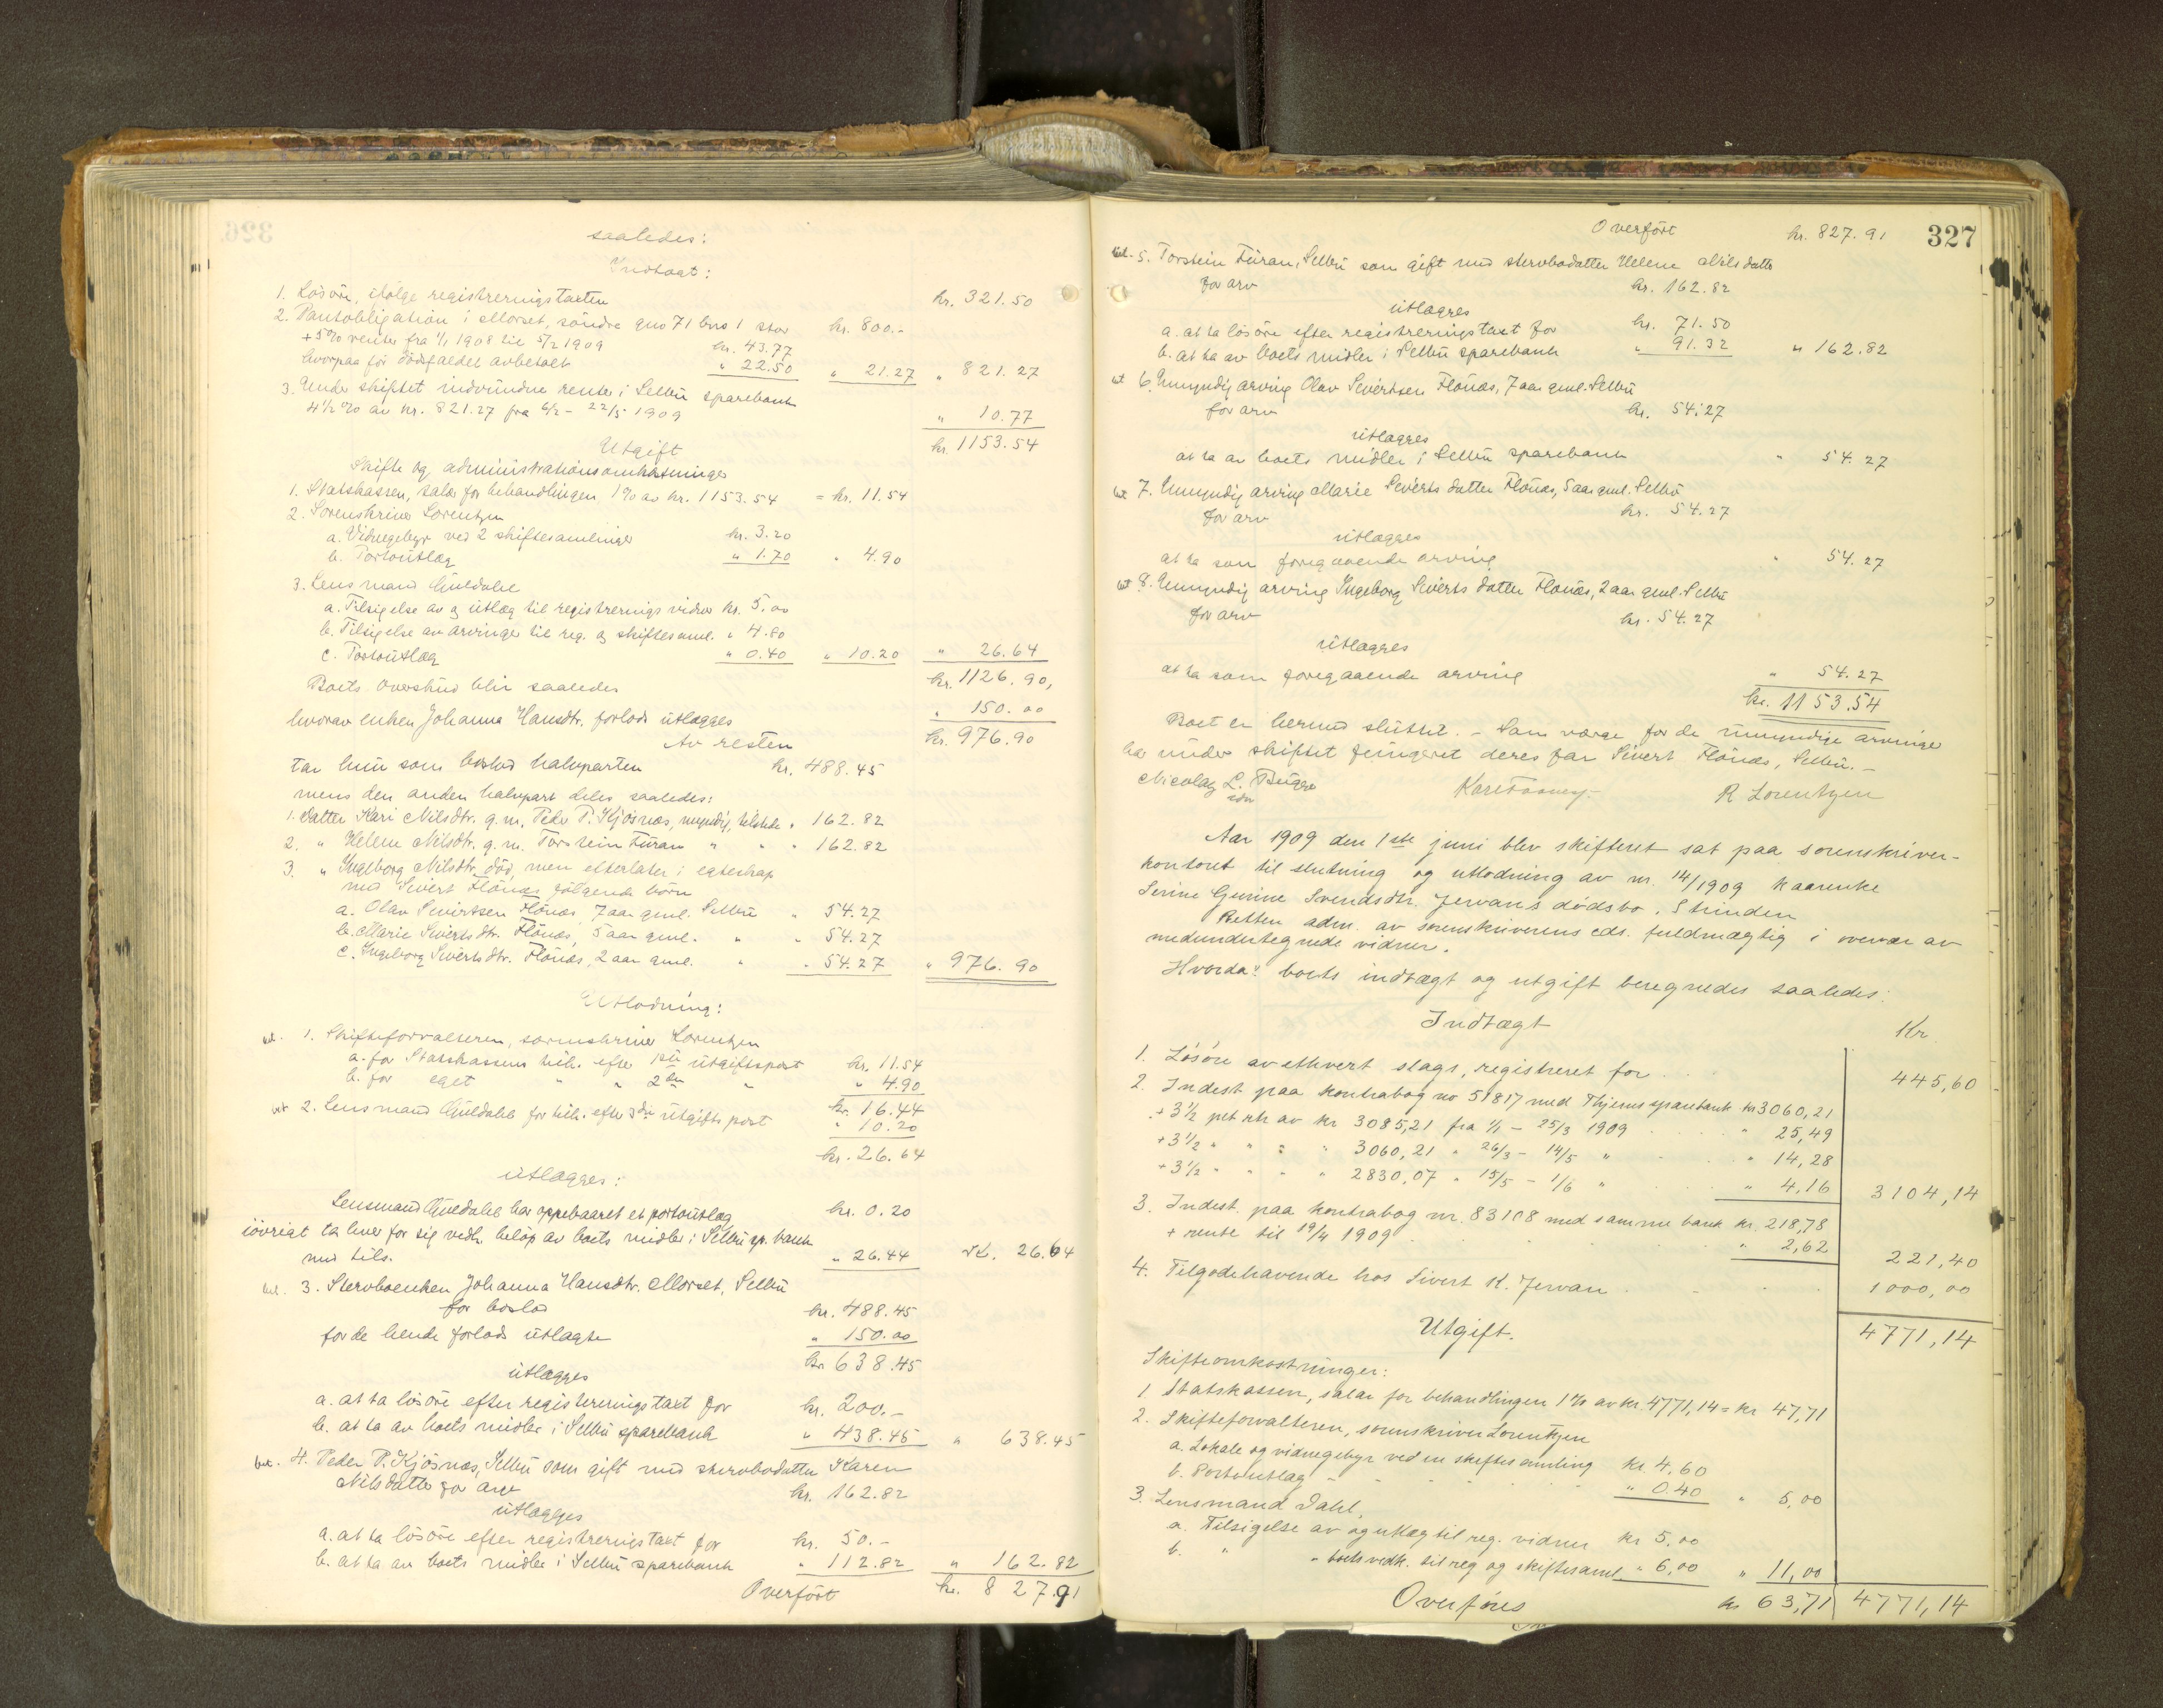 saaledes:
Indtægt:
1. Lösöre, ifölge registreringstaxten kr. 321.50
2. Pantobligation i Morset, söndre gno 71 bno 1 stor kr. 800.-
+ 5% renter fra 1/1 1908 til 5/2 1909 kr. 43.77
hvorpaa för dödsfaldet avbetalt " 22.50 " 21.27 " 821.27
3. Under skiftet indvundne renter i Selbu sparebank
4½ % av kr. 821.27 fra 6/2 - 22/5 1909 " 10.77
kr. 1153.54
Utgift
Skifte og administrationsomkostninger
1. Statskassen, salær for behandlingen 1% av kr. 1153.54 = kr. 11.54
2. Sorenskriver Lorentzen
a. Vidnegebyr ved 2 skiftesamlinger kr. 3.20
b. Portoutlæg " 1.70 " 4.90
3. Lensmand Guldahl
a. Tilsigelse av og utlæg til registrerings vidner kr. 5.00
b. Tilsigelse av arvinger til reg. og skiftesaml. " 4.80
c. Portoutlæg " 0.40 " 10.20 " 26.64
Boets overskud blir saaledes kr. 1126.90,
hvorav enken Johanna Hansdtr. forlods utlægges " 150.00
Av resten kr. 976.90
tar hun som boslod halvparten kr. 488.45
mens den anden halvpart deles saaledes:
1. Datter Kari Nilsdtr. g. m. Peder P. Kjösnæs, myndig, tilstede " 162.82
2. " Helene Nilsdtr. g. m. Torstein Furan " " " 162.82
3. " Ingeborg Nilsdtr. död, men efterlater i egteskap
med Sivert Flönæs fölgende börn
a. Olav Sivertsen Flönæs, 7 aar gml. Selbu " 54.27
b. Marie Sivertsdtr. Flönæs, 5 aar gml. " " 54.27
c. Ingeborg Sivertsdtr. Flönæs, 2 aar gml. " " 54.27 " 976.90
Utlodning:
bet. 1. Skifteforvalteren, sorenskriver Lorentzen
a. for Statskassens tilk. efter 1ste utgiftspost kr. 11.54
b. for eget " " 2den " " 4.90
kr. 16.44
bet 2. Lensmand Guldahl for tilk. efter 3die utgifts post " 10.20
kr. 26.64
utlægges:
Lensmand Guldahl har oppebaaret et portoutlæg kr. 0.20
iövrigt ta hver for sig vedk. belöp av boets midler i Selbu sp. bank
med tils. " 26.44 kr. 26.64
bet. 3. Stervboenken Johanna Hansdtr. Morset, Selbu
for boslod kr. 488.45
for de hende forlods utlagte " 150.00
kr 638.45
utlægges
a. at ta lösöre efter registreringstaxt for kr. 200.-
b. at ta av boets midler i Selbu sparebank " 438.45 " 638.45
bet. 4. Peder P. Kjösnæs, Selbu som gift med stervbodatter Karen
Nilsdatter for arv kr. 162.82
utlægges
a. at ta lösöre efter registreringstaxt for kr. 50.-
b. at ta av boets midler i Selbu sparebank " 112.82 " 162.82
Overfört kr. 827.91
Overfört kr. 827.91 327
bet. 5. Torstein Furan, Selbu som gift med stervbodatter Helene Nilsdatter
for arv kr. 162.82
utlægges
a. at ta lösöre efter registreringstaxt for kr. 71.50
b. at ta av boets midler i Selbu sparebank " 91.32 " 162.82
bet 6. Umyndig arving Olav Sivertsen Flönæs, 7 aar gml. Selbu
for arv kr. 54.27
utlægges
at ta av boets midler i Selbu sparebank " 54.27
bet 7. Umyndig arving Marie Sivertsdatter Flönæs, 5 aar gml. Selbu
for arv kr. 54.27
utlægges
at ta som foregaaende arving " 54.27
bet 8. Umyndig arving Ingeborg Sivertsdatter Flönæs, 2 aar gml. Selbu
for arv kr. 54.27
utlægges
at ta som foregaaende arving " 54.27
kr. 1153.54
Boet er hermed sluttet. - Som værge for de umyndige arvinger
har under skiftet fungeret deres far Sivert Flönæs, Selbu. -
Nicolay L. Bugge R Lorentzen
Aar 1909 den 1ste juni blev skifteret sat paa sorenskriver-
kontoret til slutning og utlodning av nr. 14/1909 kaarenke
Serine Gurine Svendsdtr. Jervan's dödsbo. Strinden
Retten adm. av sorenskriverens eds. fuldmægtig i overvær av
medundertegnede vidner.
Hvorda: boets indtægt og utgift beregnedes saaledes:
Indtægt Kr
1. Lösöre av ethvert slags, registreret for 445,60
2. Indest. paa kontrabog no 51817 med Thjems sparebank kr 3060,21
+ 3½ pct rtr av kr 3085,21 fra 1/1 - 25/3 1909 " 25,49
+ 3½ " " " " 3060,21 " 26/3 - 14/5 " " 14,28
+ 3½ " " " " 2830,07 " 15/5 - 1/6 " " 4,16 3104,14
3. Indest. paa kontrabog nr. 83108 med samme bank kr. 218,78
+ rente til 19/4 1909 " 2,62 221,40
4. Tilgodehavende hos Sivert K. Jervan 1000,00
4771,14
Utgift.
Skifteomkostninger:
1. Statskassen, salær for behandlingen 1% av kr. 4771,14 = kr 47,71
2. Skifteforvalteren, sorenskriver Lorentzen
a. Lokale og vidnegebyr ved en skiftesamling kr. 4,60
b. Portoutlæg " 0.40 " 5,00
3. Lensmand Dahl,
a. Tilsigelse av og utlæg til reg. vidner kr 5,00
b. " " boets vedk. til reg og skiftesaml " 6,00 " 11,00
Overföres kr 63,71 4771,14